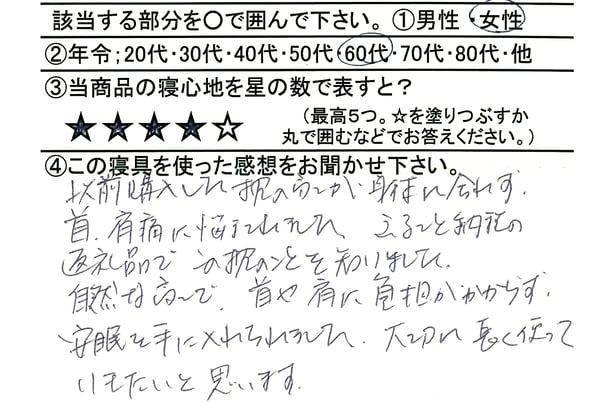 該当する部分を〇で囲んで下さい。①男性・女性
②年令;20代・30代・40代・50代・60代・70代・80代・他
③当商品の寝心地を星の数で表すと?
★★★★☆
(最高5つ。☆を塗りつぶすか
丸で囲むなどでお答えください。)
④この寝具を使った感想をお聞かせ下さい。
以前購入した枕の高さが身体に合わず、
首、肩痛に悩まされました。ふるさと納税の
返礼品でこの枕のことを知りました。
自然な高さで、首や肩に負担がかからず、
安眠を手に入れられました。大切に長く使って
いきたいと思います。